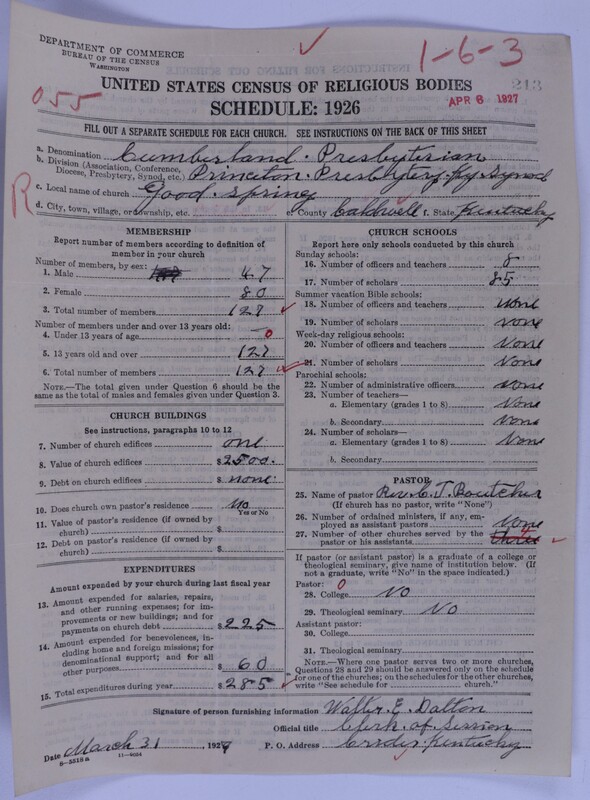 DEPARTMENT OF COMMERCE
BUREAU OF THE CENSUS
WASHINGTON
1-6-3
213
055
APR 6 1927
UNITED STATES CENSUS OF RELIGIOUS BODIES
SCHEDULE: 1926
FILL OUT A SEPARATE SCHEDULE FOR EACH CHURCH. SEE INSTRUCTIONS ON THE BACK OF THIS SHEET
a. Denomination Cumberland Presbyterian
b. Division (Association, Conference, Diocese, Presbytery, Synod, etc.) Princeton Presbytery. Ky Synod
R
c. Local name of church Good Spring
d. City, town, village, or township, etc. e. County Caldwell f. State Kentucky
MEMBERSHIP
Report number of members according to definition of
member in your church
Number of members, by sex:
1. Male 47
2. Female 80
3. Total number of members 127
Number of members under and over 13 years old:
4. Under 13 years of age 0
5. 13 years old and over 127
6. Total number of members 127
NOTE.—The total given under Question 6 should be
same as the total of males and females given under Question 3.
CHURCH BUILDINGS
See instructions, paragraphs 10 to 12
7. Number of church edifices one
8. Value of church edifices $2500.
9. Debt on church edifices $none
10. Does church own pastor's residence No
Yes or No
11. Value of pastor's residence (if owned by
church) $
12. Debt on pastor's residence (if owned by
church) $
EXPENDITURES
Amount expended by your church during last fiscal year
13. Amount expended for salaries, repairs,
and other running expenses; for im-
provements or new buildings; and for
payments on church debt $225
14. Amount expended for benevolences, in-
cluding home and foreign missions; for
denominational support; and for all
other purposes $60
15. Total expenditures during year $285
CHURCH SCHOOLS
Report here only schools conducted by this church
Sunday schools:
16. Number of officers and teachers 8
17. Number of scholars 85
Summer vacation Bible schools:
18. Number of officers and teachers none
19. Number of scholars none
Week-day religious schools:
20. Number of officers and teachers None
21. Number of scholars None
Parochial schools:
22. Number of administrative officers None
23. Number of teachers—
a. Elementary (grades 1 to 8) None
b. Secondary None
24. Number of scholars—
a. Elementary (grades 1 to 8) None
b. Secondary
PASTOR
25. Name of pastor Rev. C. T. Boucher
(If church has no pastor, write "None")
26. Number of ordained ministers, if any, em-
ployed as assistant pastors None
27. Number of other churches served by the
pastor or his assistants three
If pastor (or assistant pastor) is a graduate of a college or
theological seminary, give name of institution below. (If
not a graduate, write "No" in the space indicated.)
Pastor: 0
28. College No
29. Theological seminary No
Assistant pastor:
30. College
31. Theological seminary
NOTE.—Where one pastor serves two or more churches,
Questions 28 and 29 should be answered only on the schedule
for one of the churches; on the schedules for the other churches,
write "See schedule for church."
Signature of person furnishing information Walter E. Dalton
Official title Clerk of Session
Date March 31, 1927 P. O. Address Crider, Kentucky
8-3518a 11-9024